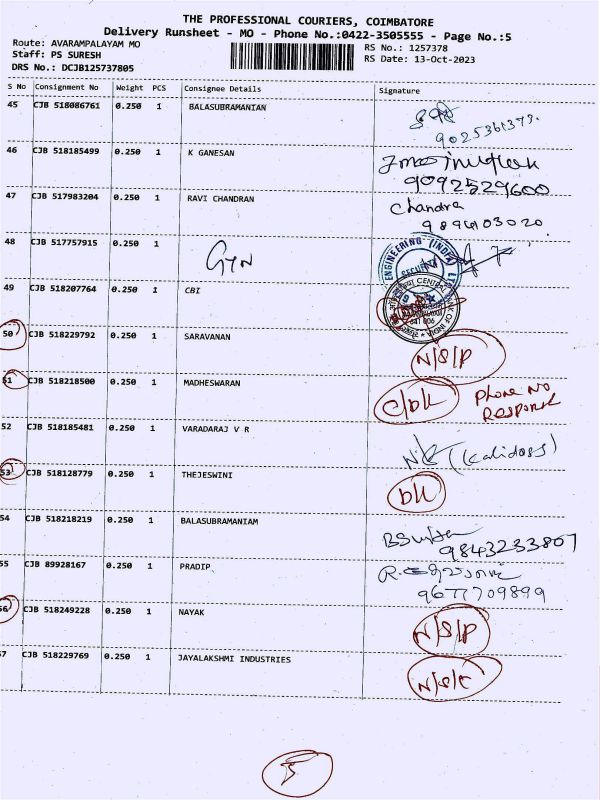 THE PROFESSIONAL COURIERS, COIMBATORE
Delivery Runsheet - MO - Phone No.:0422-3505555 - Page No.:5
Route: AVARAMPALAYAM MO
RS No.: 1257378
Staff: PS SURESH
RS Date: 13-Oct-2023
DRS No.: DCJB125737805
S No Consignment No Weight PCS Consignee Details Signature
45 CJB 518086761 0.250 1 BALASUBRAMANIAN
9025361379.
46 CJB 518185499 0.250 1 K GANESAN
9092529600
47 CJB 517983204 0.250 1 RAVI CHANDRAN Chandra
9894103020.
48 CJB 517757915 0.250 1
ENGINEERING (INDIA)
SECURITY
49 CJB 518207764 0.250 1 CBI
CENTRAL BANK OF INDIA
50 CJB 518229792 0.250 1 SARAVANAN N/S/P
51 CJB 518218500 0.250 1 MADHESWARAN C/DK Phone No
Response
52 CJB 518185481 0.250 1 VARADARAJ V R (Kalidoss)
53 CJB 518128779 0.250 1 THEJESWINI DK
54 CJB 518218219 0.250 1 BALASUBRAMANIAM
9843233807
55 CJB 89928167 0.250 1 PRADIP
9677709899
56 CJB 518249228 0.250 1 NAYAK N/S/P
57 CJB 518229769 0.250 1 JAYALAKSHMI INDUSTRIES
5